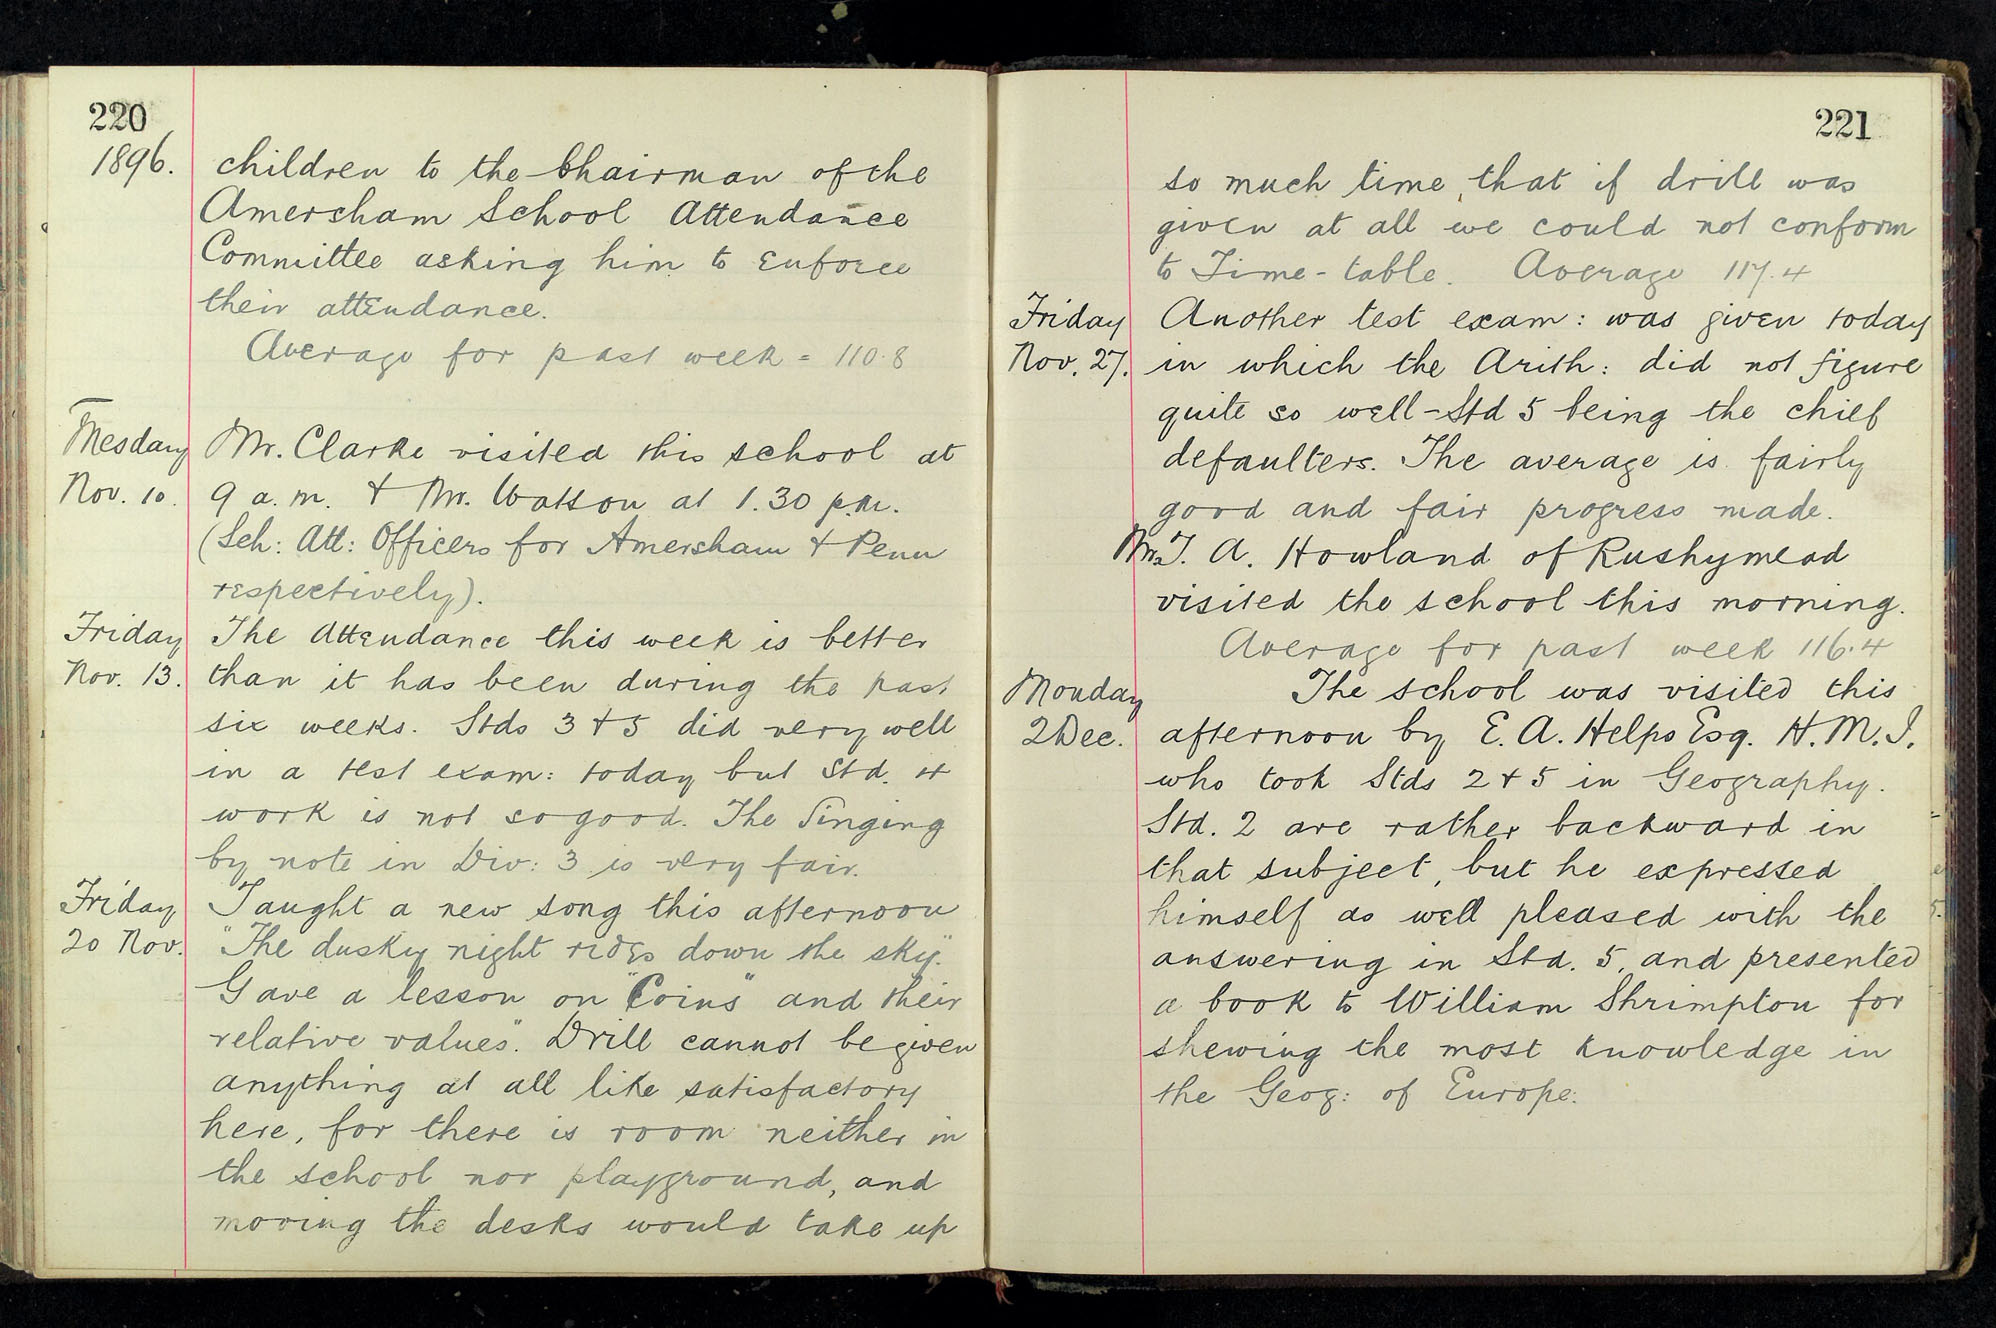 220
1896.
children to the Chairman of the
Amersham School Attendance
Committee asking him to enforce
their attendance.
Average for past week = 110.8
Tuesday
Nov. 10.
Mr. Clarke visited this school at
9 a.m. & Mr. Watson at 1.30 p.m.
(Sch: Att: Officers for Amersham & Penn
respectively).
Friday
Nov. 13.
The Attendance this week is better
than it has been during the past
six weeks. Stds 3 & 5 did very well
in a test exam: today but Std. 4
work is not so good. The Singing
by note in Div: 3 is very fair.
Friday
20 Nov.
Taught a new song this afternoon
"The dusky night rides down the sky".
Gave a lesson on "Coins" and their
relative values". Drill cannot be given
anything at all like satisfactory
here, for there is room neither in
the school nor playground, and
moving the desks would take up
221
so much time, that if drill was
given at all we could not conform
to Time-table. Average 117.4
Friday
Nov. 27.
Another test exam: was given today
in which the Arith: did not figure
quite so well - Std 5 being the chief
defaulters. The average is fairly
good and fair progress made.
Mr. T. A. Howland of Rushymead
visited the school this morning.
Average for past week 116.4
Monday
2 Dec.
The school was visited this
afternoon by E. A. Helps Esq. H.M.I.
who took Stds 2 & 5 in Geography.
Std. 2 are rather backward in
that subject, but he expressed
himself as well pleased with the
answering in Std. 5, and presented
a book to William Shrimpton for
shewing the most knowledge in
the Geog: of Europe.